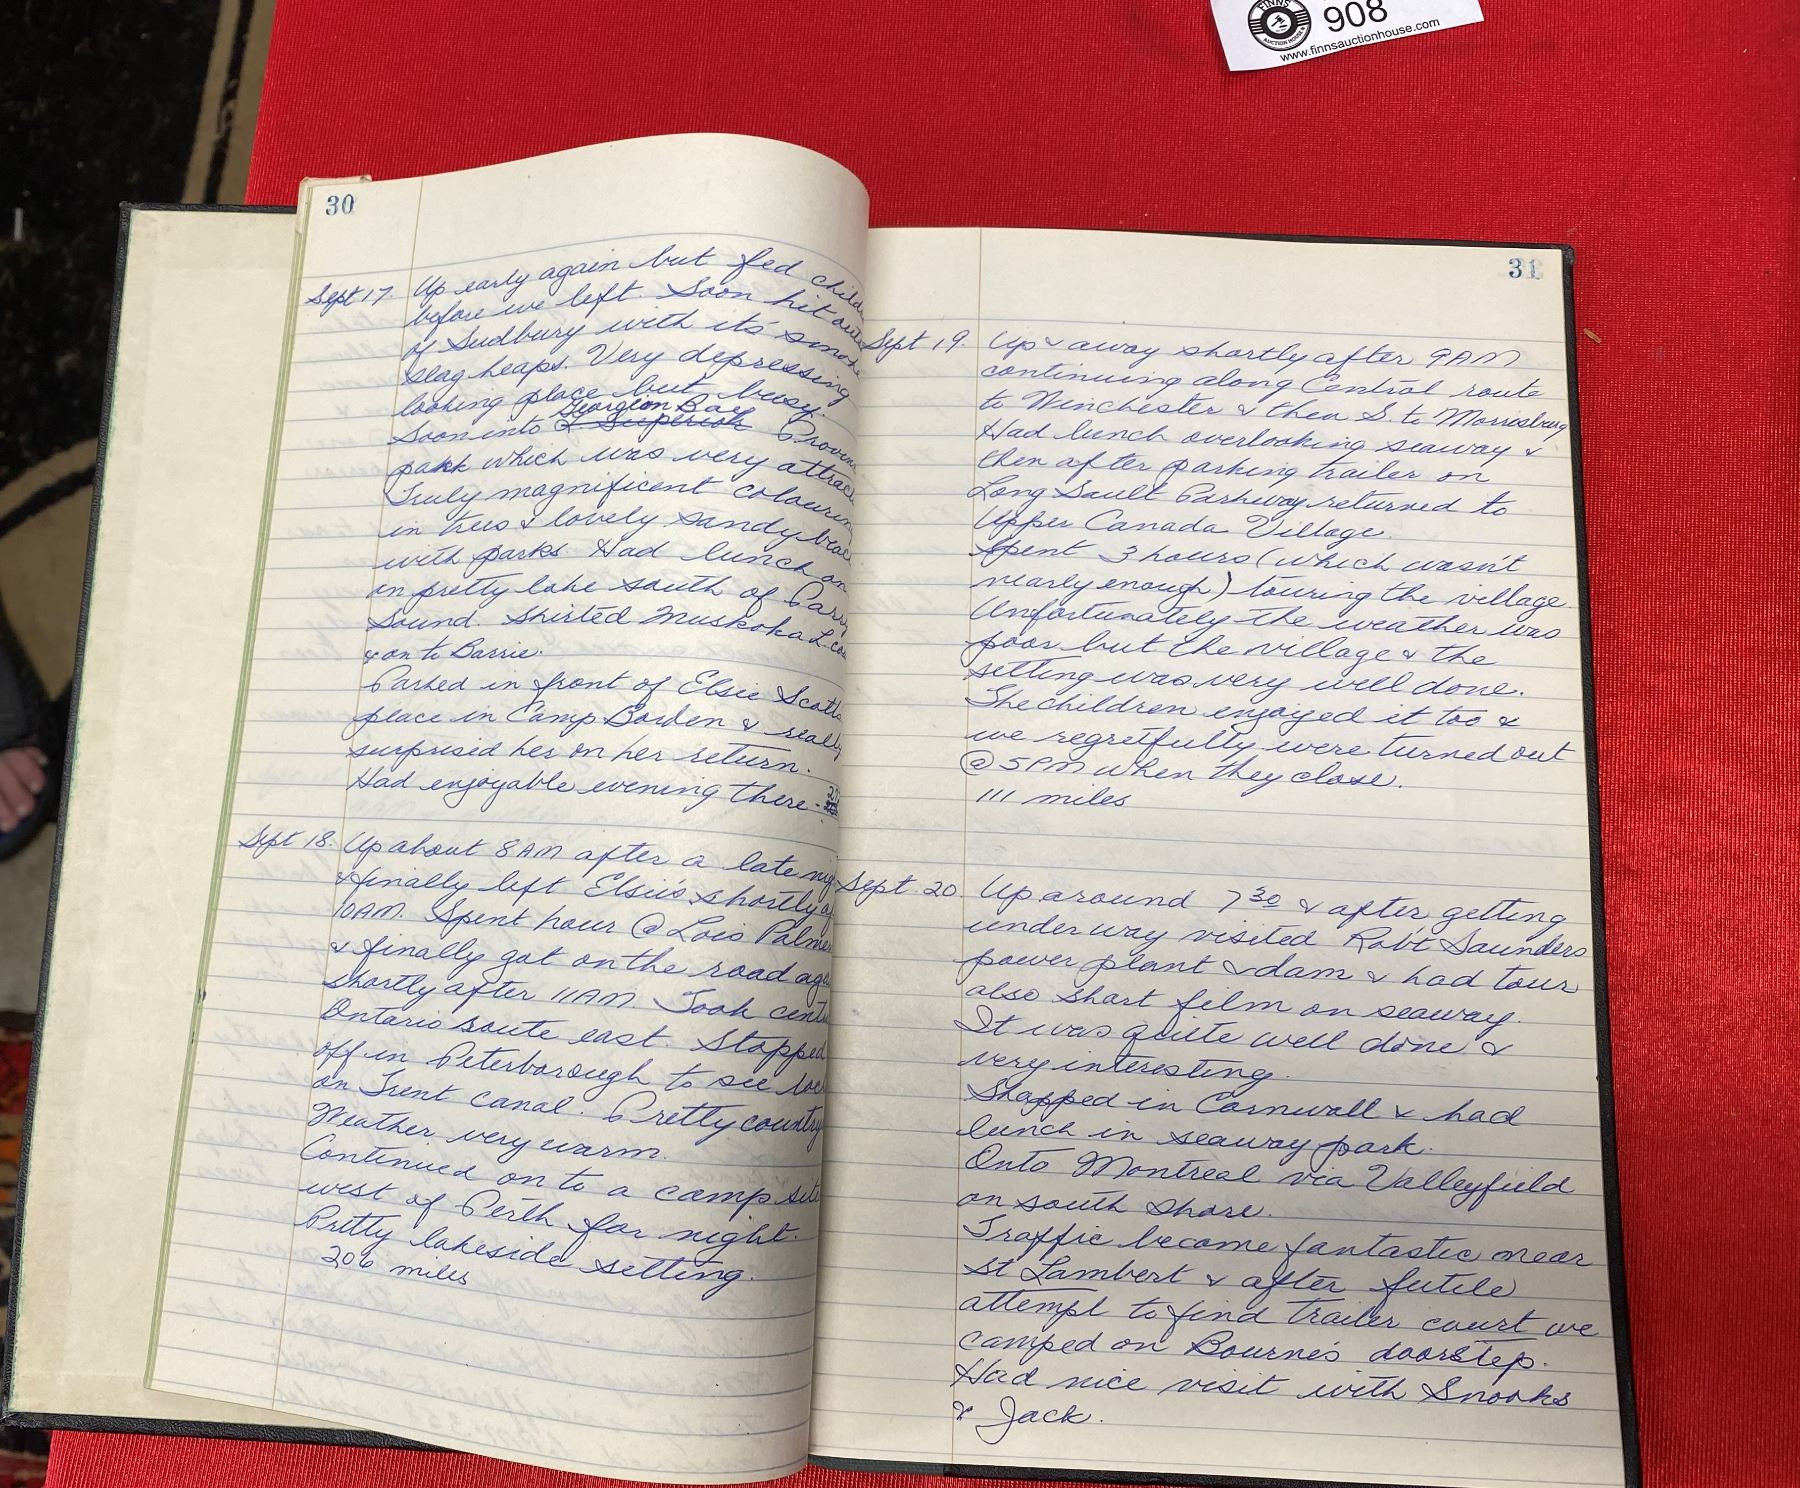 FINNS
AUCTION HOUSE
908
www.finnsauctionhouse.com
30
Sept 17. Up early again but fed child
before we left. Soon hit outs
of Sudbury with its' smoke
slag heaps. Very depressing
looking place but busy.
Georgian Bay
Soon into L Superior Provin
park which was very attrac
Truly magnificent colouring
in trees & lovely sandy beac
with parks. Had lunch on
on pretty lake south of Parry
Sound. Skirted Muskoka L.
& on to Barrie.
Parked in front of Elsie Scotts
place in Camp Borden & really
surprised her on her return.
Had enjoyable evening there -
Sept 18. Up about 8 AM after a late nig
& finally left Elsie's shortly af
10AM. Spent hour @ Lois Palmer
& finally got on the road aga
shortly after 11AM. Took cent
Ontario route east. Stopped
off in Peterborough to see loc
on Trent canal. Pretty country
Weather very warm.
Continued on to a camp site
west of Perth for night.
Pretty lakeside setting.
206 miles
31
Sept 19. Up & away shortly after 9AM
continuing along Central route
to Winchester & then S. to Morresburg
Had lunch overlooking seaway &
then after parking trailer on
Long Sault Parkway returned to
Upper Canada Village.
Spent 3 hours (which wasn't
nearly enough) touring the village.
Unfortunately the weather was
poor but the village & the
setting was very well done.
The children enjoyed it too &
we regretfully were turned out
@ 5PM when they close.
111 miles
Sept. 20. Up around 7 30 & after getting
under way visited Rob't Saunders
power plant & dam & had tour
also short film on seaway.
It was quite well done &
very interesting.
Shopped in Cornwall & had
lunch in seaway park.
Onto Montreal via Valleyfield
on south shore.
Traffic became fantastic near
St Lambert & after futile
attempt to find trailer court we
camped on Bourne's doorstep.
Had nice visit with Snooks
& Jack.